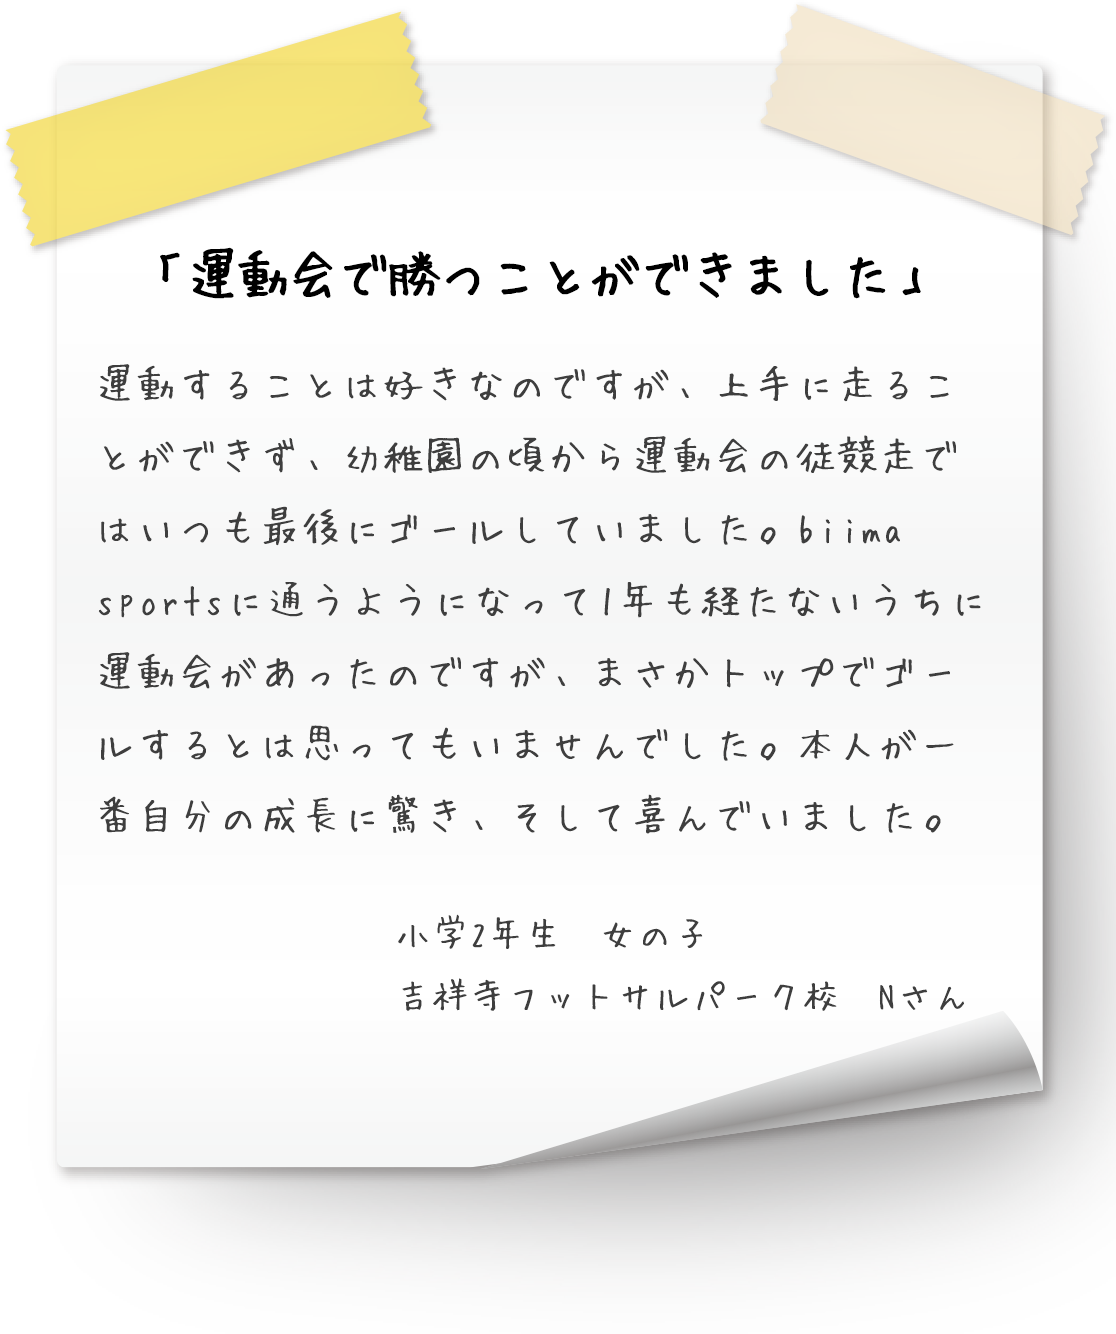 「運動会で勝つことができました」
運動することは好きなのですが、上手に走るこ
とができず、幼稚園の頃から運動会の徒競走で
はいつも最後にゴールしていました。biima
sportsに通うようになって1年も経たないうちに
運動会があったのですが、まさかトップでゴー
ルするとは思ってもいませんでした。本人が一
番自分の成長に驚き、そして喜んでいました。
小学2年生　女の子
吉祥寺フットサルパーク校　Nさん